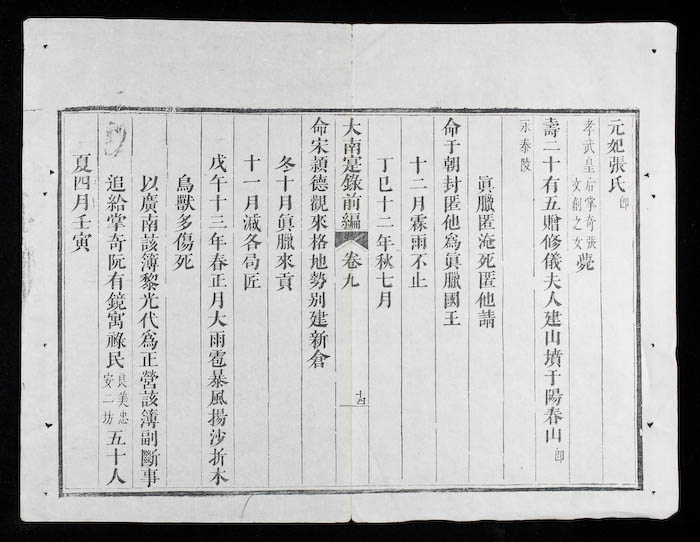 元妃張氏卽
孝武皇后掌奇張
文創之女
薨
壽二十有五贈修儀夫人建山墳于陽春山卽
永泰陵
眞臘匿淹死匿他請
命于朝封匿他為眞臘國王
十二月霖雨不止
丁巳十二年秋七月
大南寔錄前編
卷九
十四
命宋穎德觀來格地勢別建新倉
冬十月眞臘來貢
十一月滅各局匠
戊午十三年春正月大雨雹暴風揚沙折木
鳥獸多傷死
以廣南該簿黎光代為正營該簿副斷事
追給掌奇阮有鏡寓祿民
良美忠
安二坊
五十人
夏四月壬寅